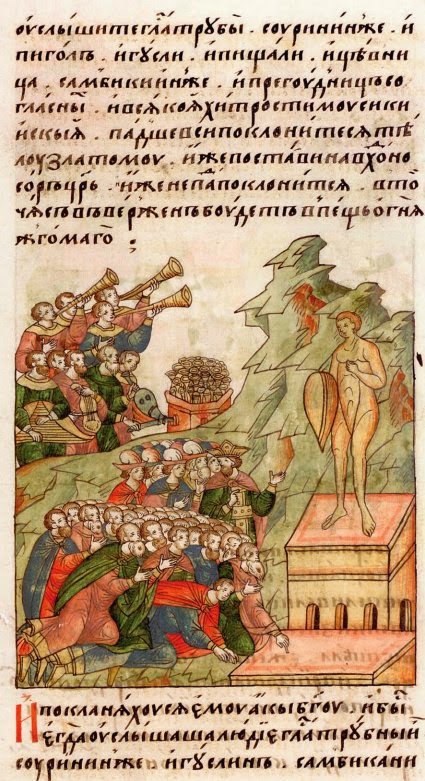 оуслышите гла трубы . соурининже . и
пиголъ . игусли . ипищали . ицѣвни
ца . самбикииже . ипрегоудницъсо
гласны . ивсякояхитростимоусики
искыя . падшевсипоклонитесятѣ
лоузлатомоу . ижепоставинавхоно
сорцрь . иженепапоклонится . вто
чясъвъверженъбоудетъвпещьогня
жгомаго :
Ипокланяхоусяемоуакыбгоу . ибы
егдаоуслышашалюдиеглатрубныи
соурининже . игуслинъ . самбикаии